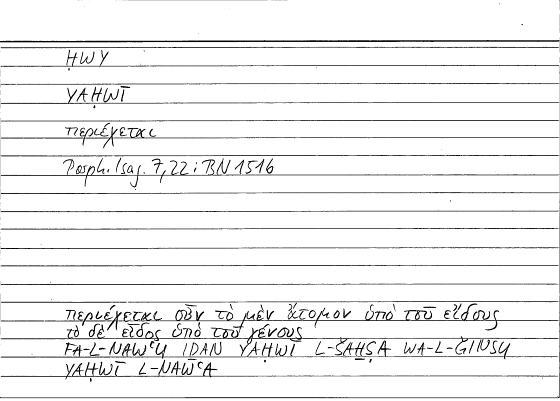 ḤWY
YAḤWĪ
περιέχεται
Porph. Isag. 7,22 : BN 1516
περιέχεται οὖν τὸ μὲν ἄτομον ὑπὸ τοῦ εἴδους
τὸ δὲ εἶδος ὑπὸ τοῦ γένους
FA-L-NAWʿU IḎAN YAḤWĪ L-ŠAḪṢA WA-L-ǦINSU
YAḤWĪ L-NAWʿA